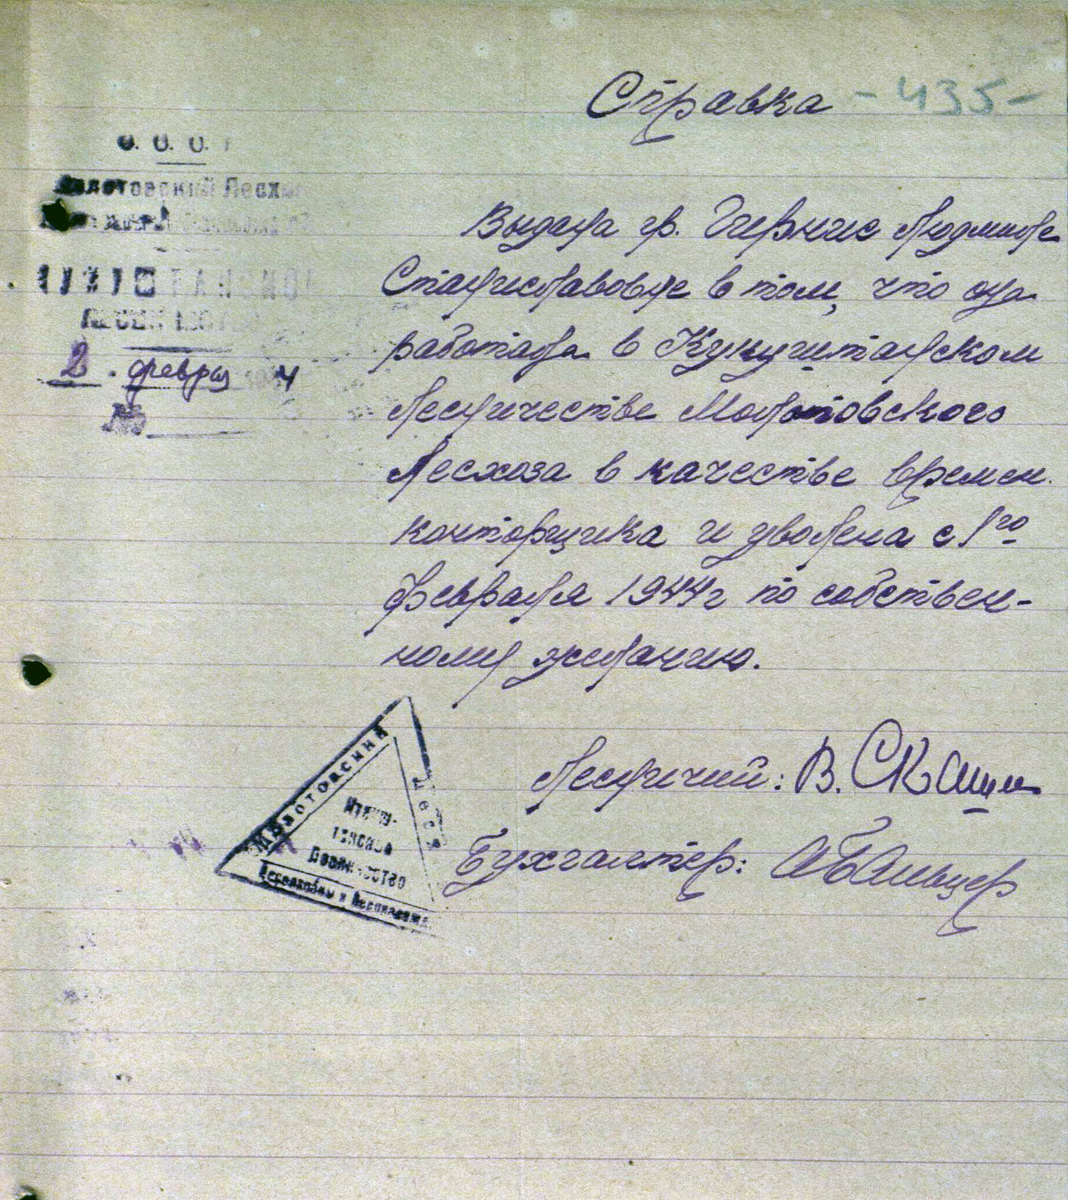 Справка -435-
С. С. С. Р
Молотовский Лесхоз
Лесничество
2 . феврал 194 4
№
Выдана гр. Людмиле
Станиславовне в том, что она
работала в Кунуштанском
Лесничестве Молотовского
Лесхоза в качестве времен.
конторщика и уволена с 1го
февраля 1944 г по собствен-
ному желанию.
Лесничий: В. 
Бухгалтер: 
Молотовский
Лесх
Лесничество
Лесоохраны и Лесонасажд.